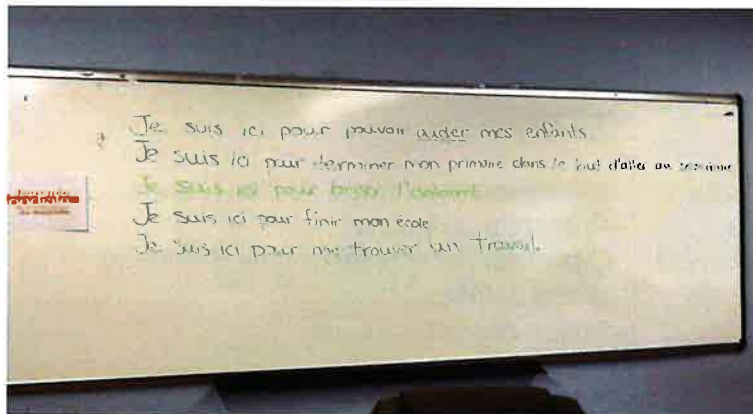 Je suis ici pour pouvoir aider mes enfants
Je suis ici pour terminer mon primaire dans le but d'aller au
Je suis ici pour l'isolement
Je suis ici pour finir mon école
Je suis ici pour me trouver un travail.